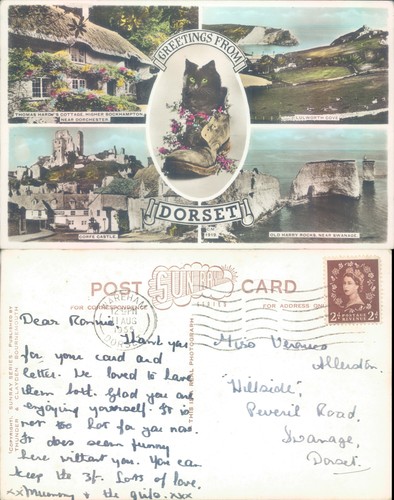 GREETINGS FROM
THOMAS HARDY'S COTTAGE, HIGHER BOCKHAMPTON,
NEAR DORCHESTER
LULWORTH COVE
CORFE CASTLE
DORSET
OLD HARRY ROCKS, NEAR SWANAGE
POST SUNRAY CARD
SERIES
FOR CORRESPONDENCE
FOR ADDRESS ONLY
WAREHAM
AUG
1955
DORSET
2D POSTAGE REVENUE 2D
COPYRIGHT, SUNRAY SERIES. PUBLISHED BY
THUNDER & CLAYDEN BOURNEMOUTH
THIS IS A REAL PHOTOGRAPH
Dear Ronnie
Thank you
for your card and
letter. We loved to have
them both. Glad you are
enjoying yourself. It is
not so hot for you now.
It does seem funny
here without you. You can
keep the 3/-. Lots of love.
xxMummy & the girls. xxx
Miss
Allerdon.
"Hillside,"
Peveril Road,
Swanage,
Dorset.